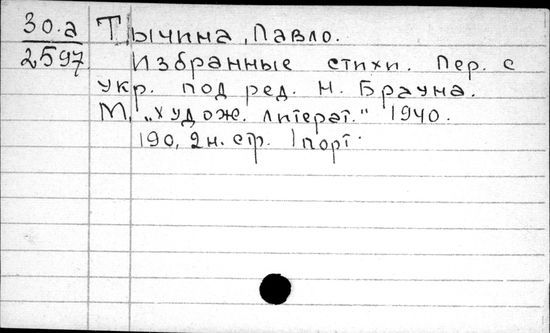 30.а Тычина, Павло.
2597 Избранные стихи. Пер. с
укр. под ред. Н. Брауна.
М., „Худож. литерат." 1940.
190, 2н. стр. 1 порт.